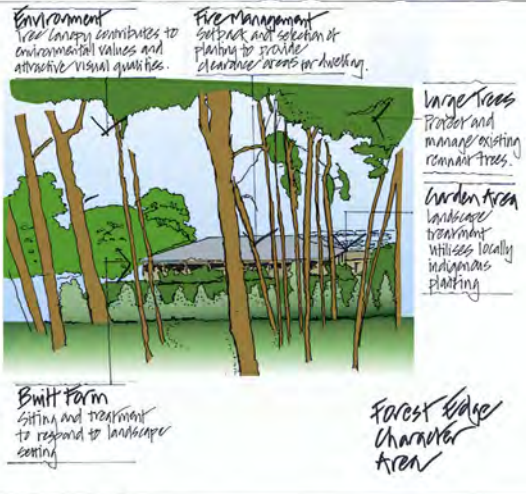 Environment
Tree canopy contributes to
environmental values and
attractive visual qualities.
Fire Management
Setback and selection of
planting to provide
clearance areas for dwelling.
Large Trees
Protect and
manage existing
remnant trees.
Garden Area
landscape
treatment
utilises locally
indigenous
planting
Built Form
Siting and treatment
to respond to landscape
setting
Forest Edge
Character
Area